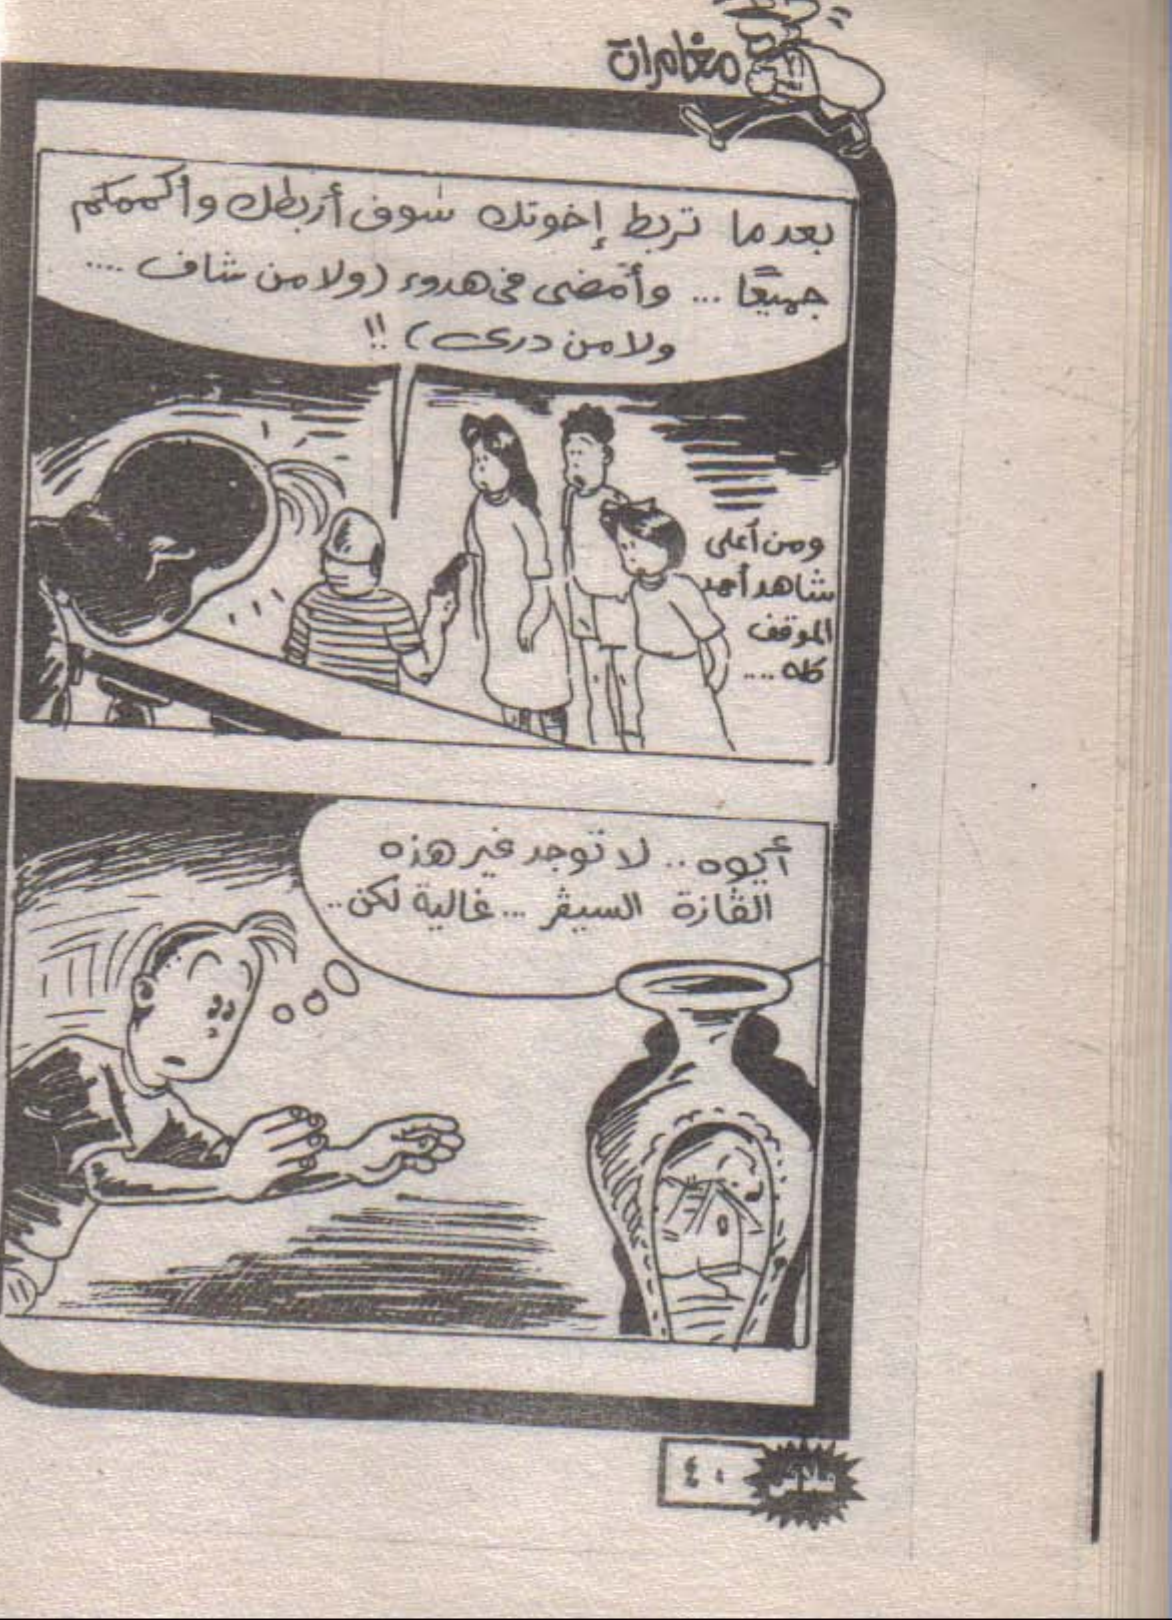 مغامرات
بعدما تربط إخوتك سوف أربطك وأكممكم
جميعًا ... وأمضى فى هدوء (ولا من شاف ....
ولا من درى) !!
ومن أعلى
شاهد أحمد
الموقف
كله ....
أيوه .. لا توجد غير هذه
الڤازة السيڤر ... غالية لكن ..
فلاش
٤٠